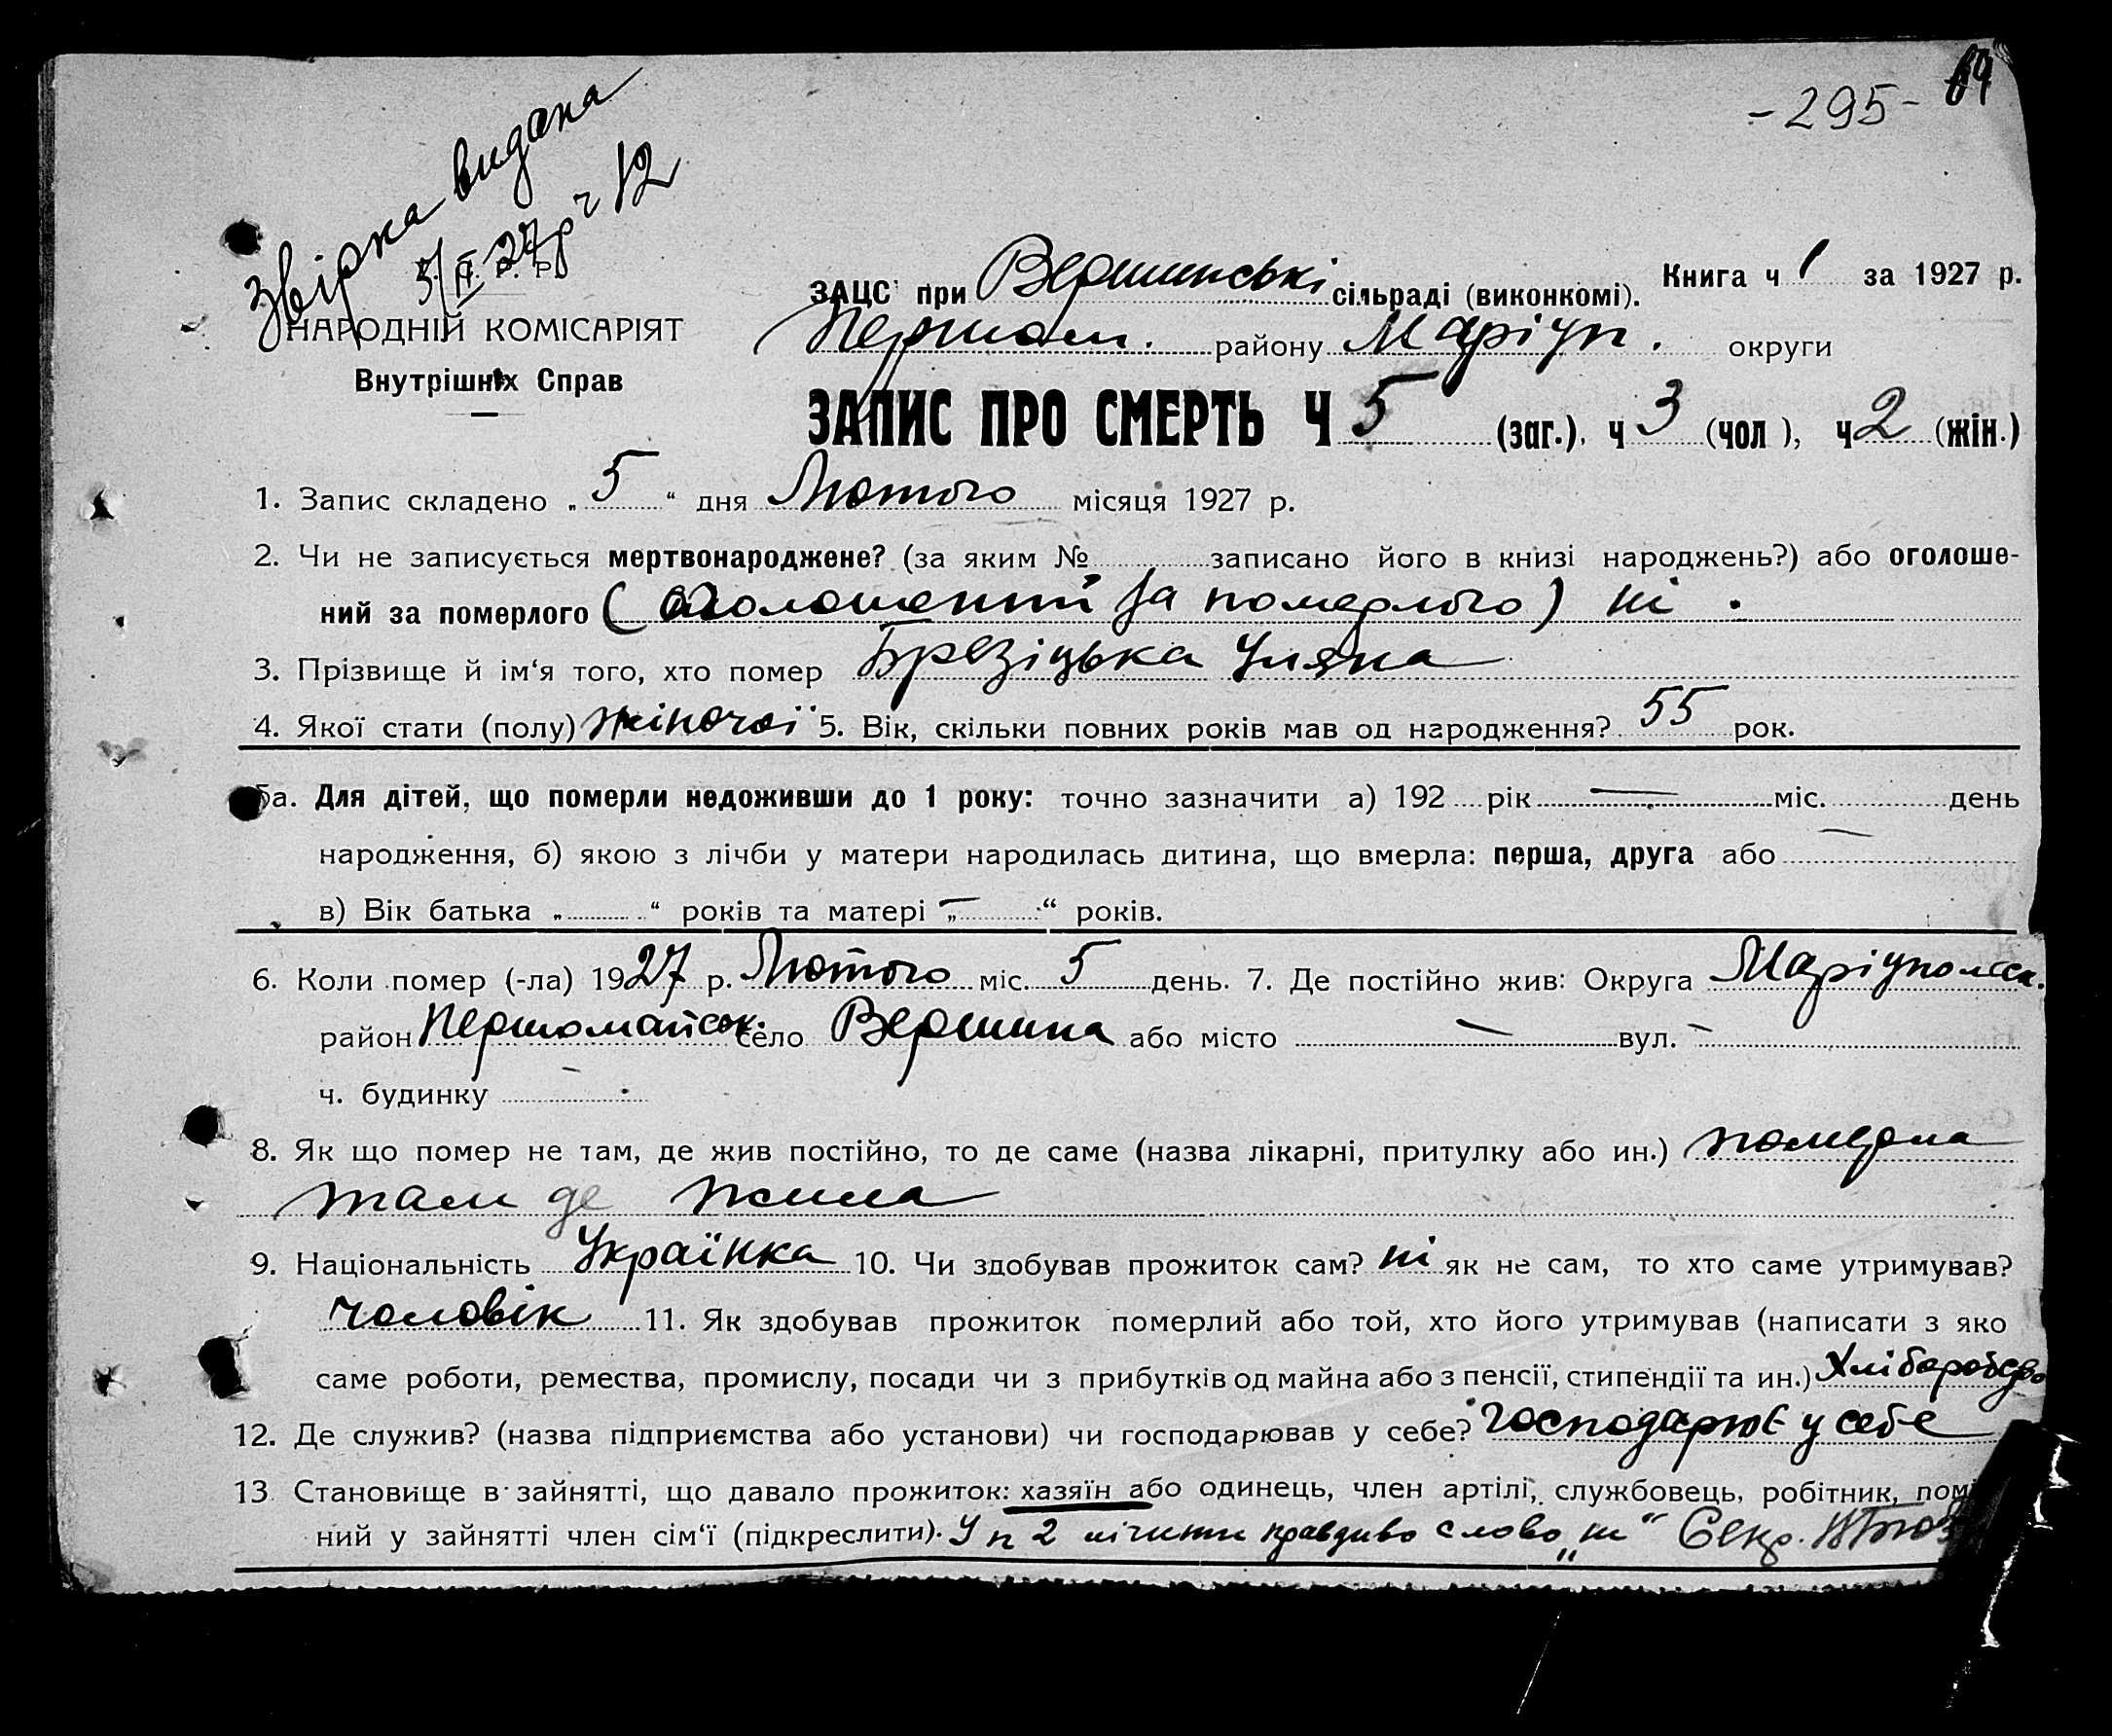 69
- 295 -
Звірка видана
5/II 27р ч 12
НАРОДНІЙ КОМІСАРІЯТ
Внутрішніх Справ
Книга ч 1 за 1927 р.
ЗАЦС при Вершинські сільраді (виконкомі).
Першом. району Маріуп. округи
ЗАПИС ПРО СМЕРТЬ Ч 5 (заг.), ч 3 (чол), ч 2 (жін.)
1. Запис складено „ 5 “ дня Лютого місяця 1927 р.
2. Чи не записується мертвонароджене? (за яким № записано його в книзі народжень?) або оголоше-
ний за померлого (оголошений за померлого) ні.
3. Прізвище й ім‘я того, хто помер Брезіцька Уляна
4. Якої стати (полу) жіночої 5. Вік, скільки повних років мав од народження? 55 рок.
5а. Для дітей, що померли недоживши до 1 року: точно зазначити а) 192 рік — міс. день
народження, б) якою з лічби у матери народилась дитина, що вмерла: перша, друга або —
в) Вік батька „ “ років та матері „ — “ років.
6. Коли помер (-ла) 1927 р. Лютого міс. 5 день. 7. Де постійно жив: Округа Маріупольск.
район Першомайськ. село Вершина або місто — вул. —
ч. будинку —
8. Як що помер не там, де жив постійно, то де саме (назва лікарні, притулку або ин.) померла
там де жила
9. Національність Українка 10. Чи здобував прожиток сам? ні як не сам, то хто саме утримував?
чоловік 11. Як здобував прожиток померлий або той, хто його утримував (написати з яко
саме роботи, ремества, промислу, посади чи з прибутків од майна або з пенсії, стипендії та ин.) Хліборобство
12. Де служив? (назва підприємства або установи) чи господарював у себе? господарює у себе
13 Становище в зайнятті, що давало прожиток: хазяїн або одинець, член артілі, службовець, робітник, помі
ний у зайнятті член сім‘ї (підкреслити). У п 2 лічити правдиво слово „ні“ Секр.